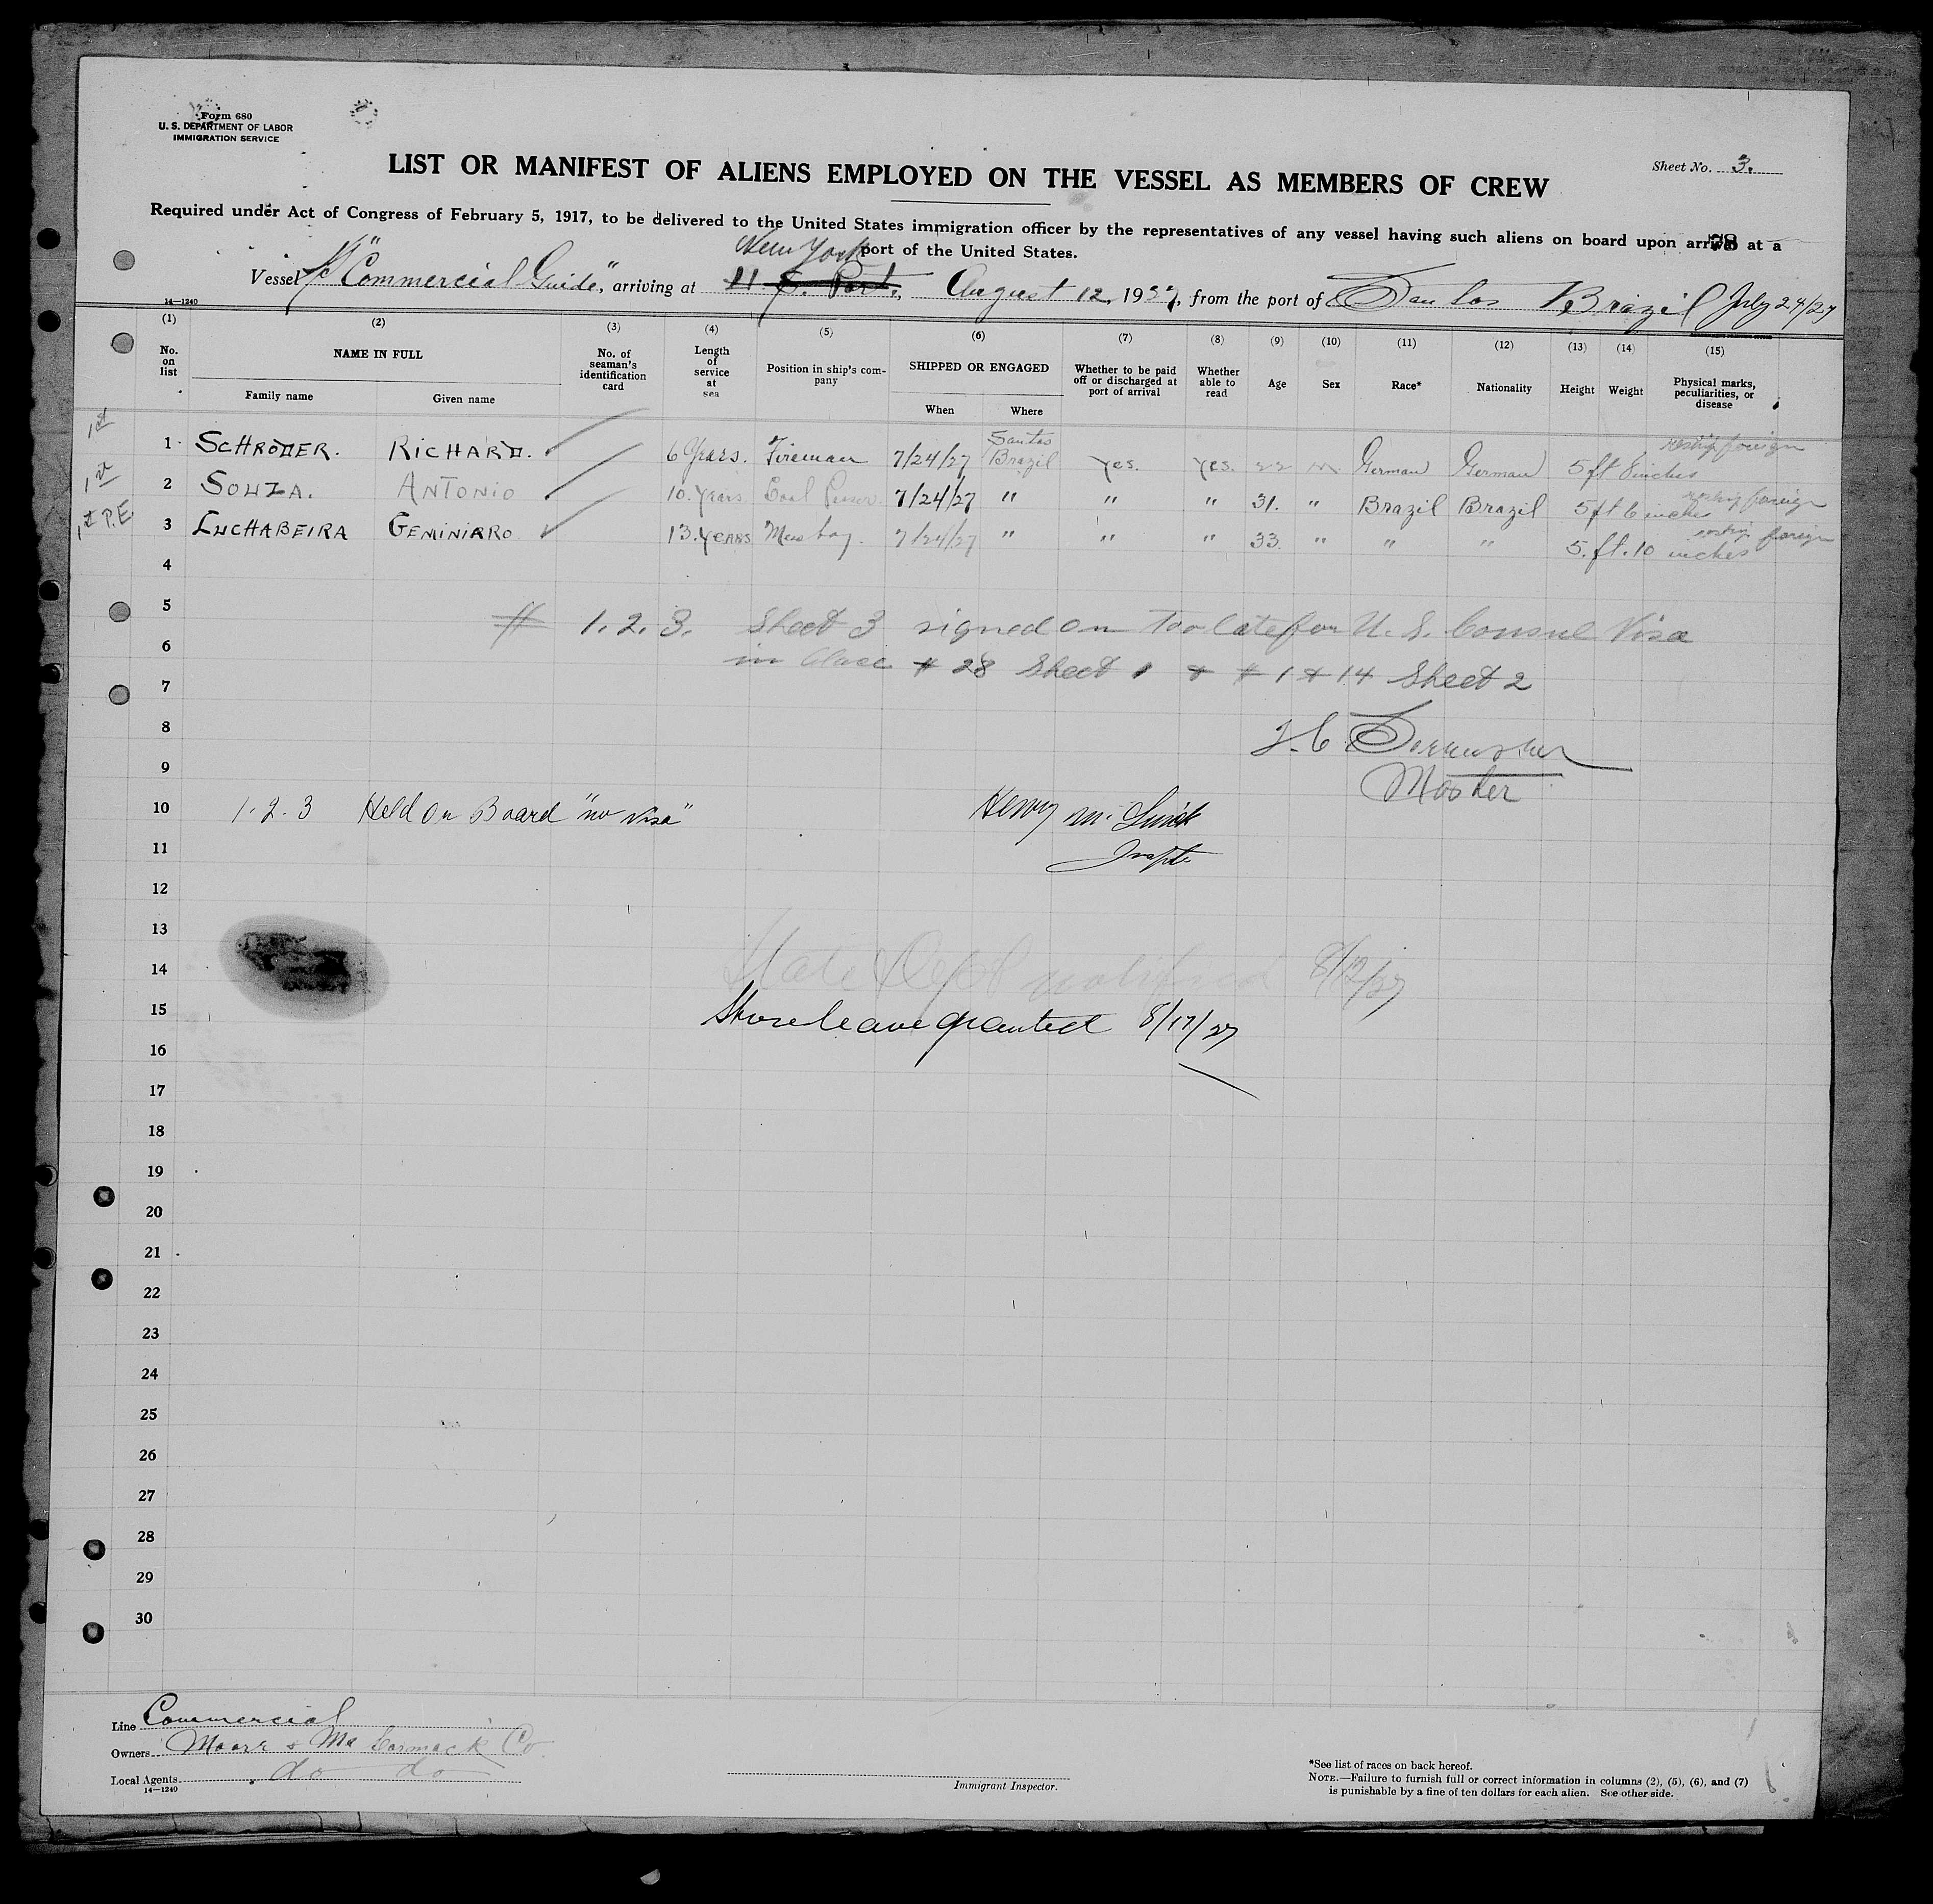 Form 680
U. S. DEPARTMENT OF LABOR
IMMIGRATION SERVICE
Sheet No. 3.
LIST OR MANIFEST OF ALIENS EMPLOYED ON THE VESSEL AS MEMBERS OF CREW
Required under Act of Congress of February 5, 1917, to be delivered to the United States immigration officer by the representatives of any vessel having such aliens on board upon arrival at a
port of the United States.
28
New York
Vessel "Commercial Guide", arriving at U. S. Port, August 12, 1927, from the port of Santos Brazil July 24/27
14—1240
(1) (2) (3) (4) (5) (6) (7) (8) (9) (10) (11) (12) (13) (14) (15)
No. on list NAME IN FULL No. of seaman's identification card Length of service at sea Position in ship's company SHIPPED OR ENGAGED Whether to be paid off or discharged at port of arrival Whether able to read Age Sex Race* Nationality Height Weight Physical marks, peculiarities, or disease
Family name Given name When Where
1st 1 SCHRODER. RICHARD. 6 Years. Fireman 7/24/27 Santos Brazil Yes. Yes. 22 m German German 5 ft 8 inches reship foreign
1st 2 SOUZA. ANTONIO 10. years Coal Passer 7/24/27 " " " 31. " Brazil Brazil 5 ft 6 inches reship foreign
1st P.E. 3 LUCHABEIRA GEMINIARO 13. YEARS Mess boy. 7/24/27 " " " 33. " " " 5. ft. 10 inches reship foreign
4
5
# 1. 2. 3. Sheet 3 signed on Too late for U. S. Consul Visa
6
in place # 28 Sheet 1 & # 1 & 14 Sheet 2
7
8
9
Master
10
1. 2. 3 Held on Board "no visa" Henry
11
Inspt.
12
13
14
State Dept notified 8/12/27
15
Shore leave granted 8/17/27
16
17
18
19
20
21
22
23
24
25
26
27
28
29
30
Line Commercial
Owners Moore & McCormack Co.
Local Agents do do
14—1240
Immigrant Inspector.
*See list of races on back hereof.
NOTE.—Failure to furnish full or correct information in columns (2), (5), (6), and (7)
is punishable by a fine of ten dollars for each alien. See other side.